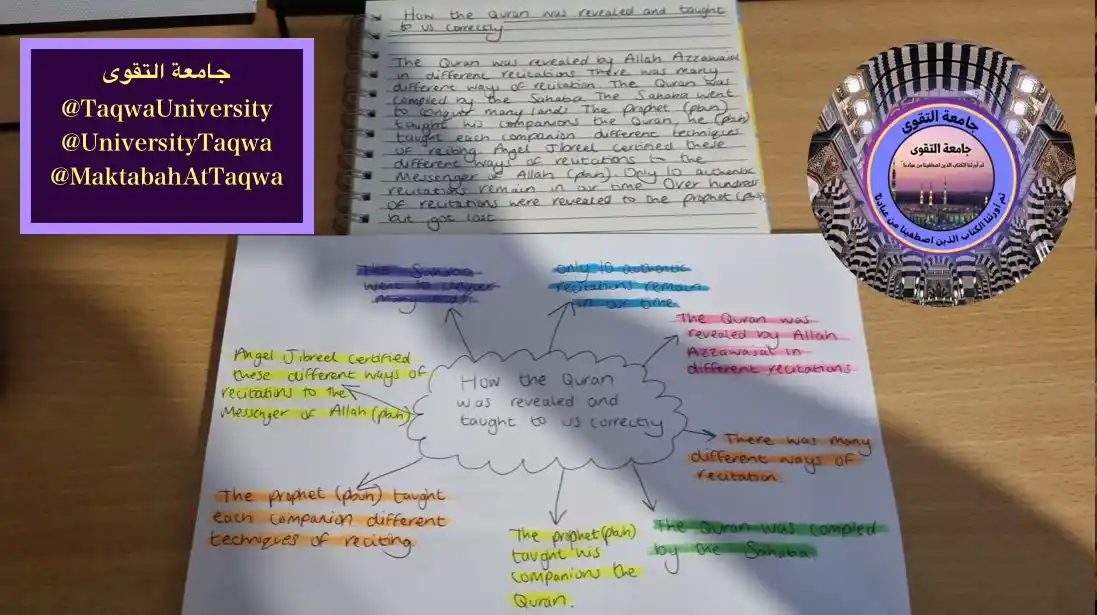 جامعة التقوى
@TaqwaUniversity
@UniversityTaqwa
@MaktabahAtTaqwa
How the Quran was revealed and taught
to us correctly
The Quran was revealed by Allah Azzawajal
in different recitations There was many
different ways of recitation The Quran was
compiled by the Sahaba The Sahaba went
to conquer many lands The prophet (pbuh)
taught his companions the Quran, he (pbuh)
taught each companion different techniques
of reciting Angel Jibreel certified these
different ways of recitations to the
Messenger of Allah (pbuh). Only 10 authentic
recitations remain in our time Over hundreds
of recitations were revealed to the prophet (pbuh)
but got lost
جامعة التقوى
جامعة التقوى
ثم أورثنا الكتاب الذين اصطفينا من عبادنا
ثم أورثنا الكتاب الذين اصطفينا من عبادنا
The Sahaba
went to conquer
many lands
only 10 authentic
recitations remain
in our time
The Quran was
revealed by Allah
Azzawajal in
different recitations
Angel Jibreel certified
these different ways of
recitations to the
Messenger of Allah (pbuh)
How the Quran
was revealed and
taught to us correctly
There was many
different ways of
recitation
The prophet (pbuh) taught
each companion different
techniques of reciting
The prophet (pbuh)
taught his
companions the
Quran.
The Quran was compiled
by the Sahaba